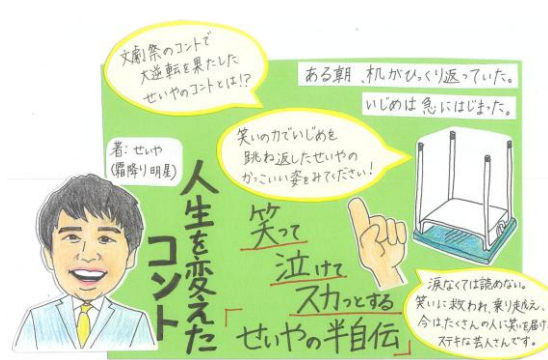 文劇祭のコントで
大逆転を果たした
せいやのコントとは!?
ある朝、机がひっくり返っていた。
いじめは急にはじまった。
著:せいや
(霜降り明星)
笑いの力でいじめを
跳ね返したせいやの
かっこいい姿をみてください!
人生を変えた
コント
笑って
泣けて
スカっとする
「せいやの半自伝」
涙なくては読めない。
笑いに救われ、乗り越え、
今はたくさんの人に笑いを届け
ステキな芸人さんです。